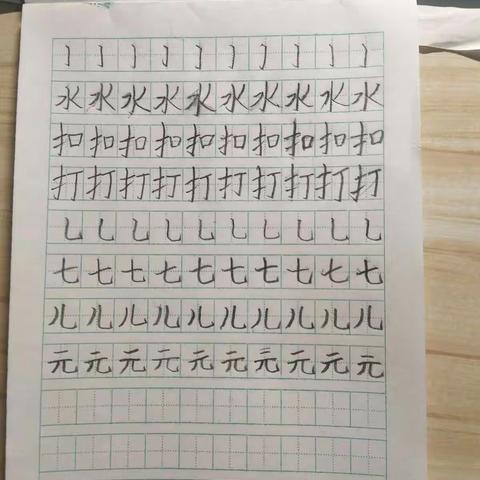 亅亅亅亅亅亅亅亅亅亅
水水水水水水水水水水
扣扣扣扣扣扣扣扣扣扣
打打打打打打打打打打
乚乚乚乚乚乚乚乚乚乚
七七七七七七七七七七
儿儿儿儿儿儿儿儿儿儿
元元元元元元元元元元